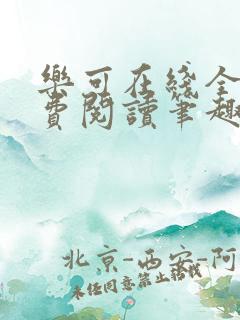 樂可在綫全
費閱讀筆趣
北京-西安-阿
未經同意禁止轉載